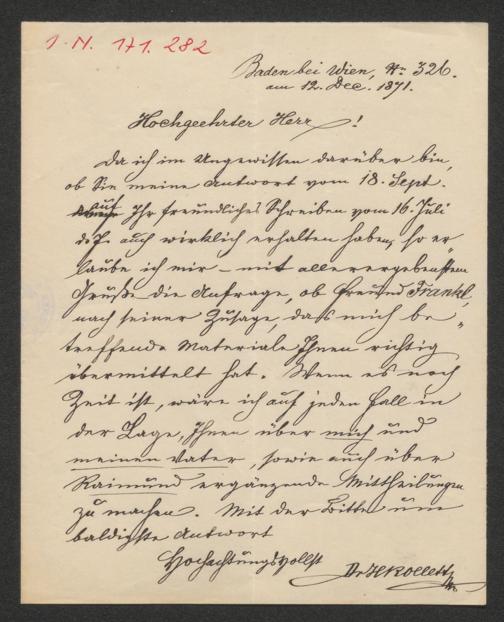 J. N. 171.282
Baden bei Wien, No 326.
am 12. Dec. 1871.
Hochgeehrter Herr!
Da ich im Ungewissen darüber bin,
ob Sie meine Antwort vom 18. Sept.
auf Ihr freundliches Schreiben vom 16. Juli
d. J. auch wirklich erhalten haben, so er-
laube ich mir – mit allerergebenstem
Gruße die Anfrage, ob Freund Frankl,
nach seiner Zusage, das mich be-
treffende Materiale Ihnen richtig
übermittelt hat. Wenn es noch
Zeit ist, wäre ich auf jeden Fall in
der Lage, Ihnen über mich und
meinen Vater, sowie auch über
Raimund ergänzende Mittheilungen
zu machen. Mit der Bitte um
baldigste Antwort
Hochachtungsvollst
Dr HRollett